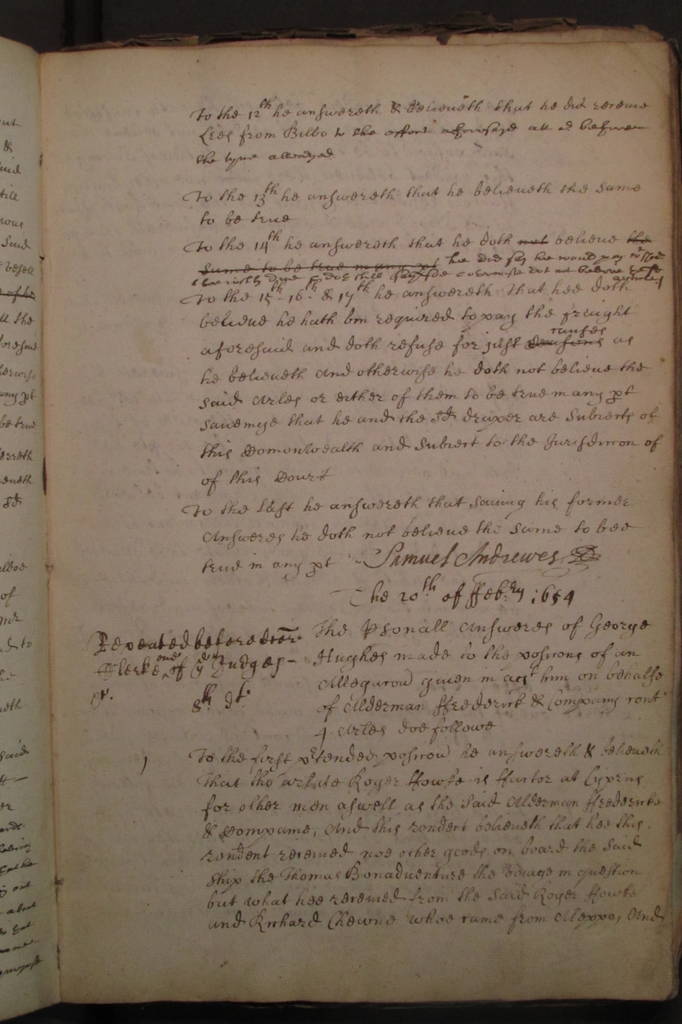 To the 12th he answereth & beleiueth that he did receiue
Lres from Bilbo to the effect
the tyme alleadged
To the 13th he answereth that he beleiueth the same
to be true
To the 14th he answereth that he doth not beleiue the
same to be true in any pt he did say he would pay
To the 15th 16th & 17th he answereth that hee doth
beleiue he hath bin required to pay the fraight
aforesaid and doth refuse for just causes as
he beleiueth And otherwise he doth not beleiue the
said Arles or either of them to be true in any pt
saveinge that he and the sd draper are Subiects of
this Comonwealth and Subiect to the Jurisdiccon of
of this Court
To the last he answereth that saving his former
Answeres he doth not beleiue the same to bee
true in any pt Samuel Andrewes
The 20th of Feb:ry 1654
Repeated before doctr
Clerke one of ye Judges
The Psonall Answeres of George
Hughes made to the posicons of an
Allegacon given in agt him on behalfe
of Alderman Frederick & Company cont
4 Arles doe followe
1 To the first ptended posicon he answereth & beleiueth
that the arlate Roger Fowke is Factor at Cyprus
for other men aswell as the said Alderman Frederick
& Companie, And this rondent beleiueth that hee this
rondent received noe other goods on board the said
ship the Thomas Bonadventure the voyage in question
but what hee received from the said Roger Fowke
and Richard Chewne whoe came from Aleppo, And